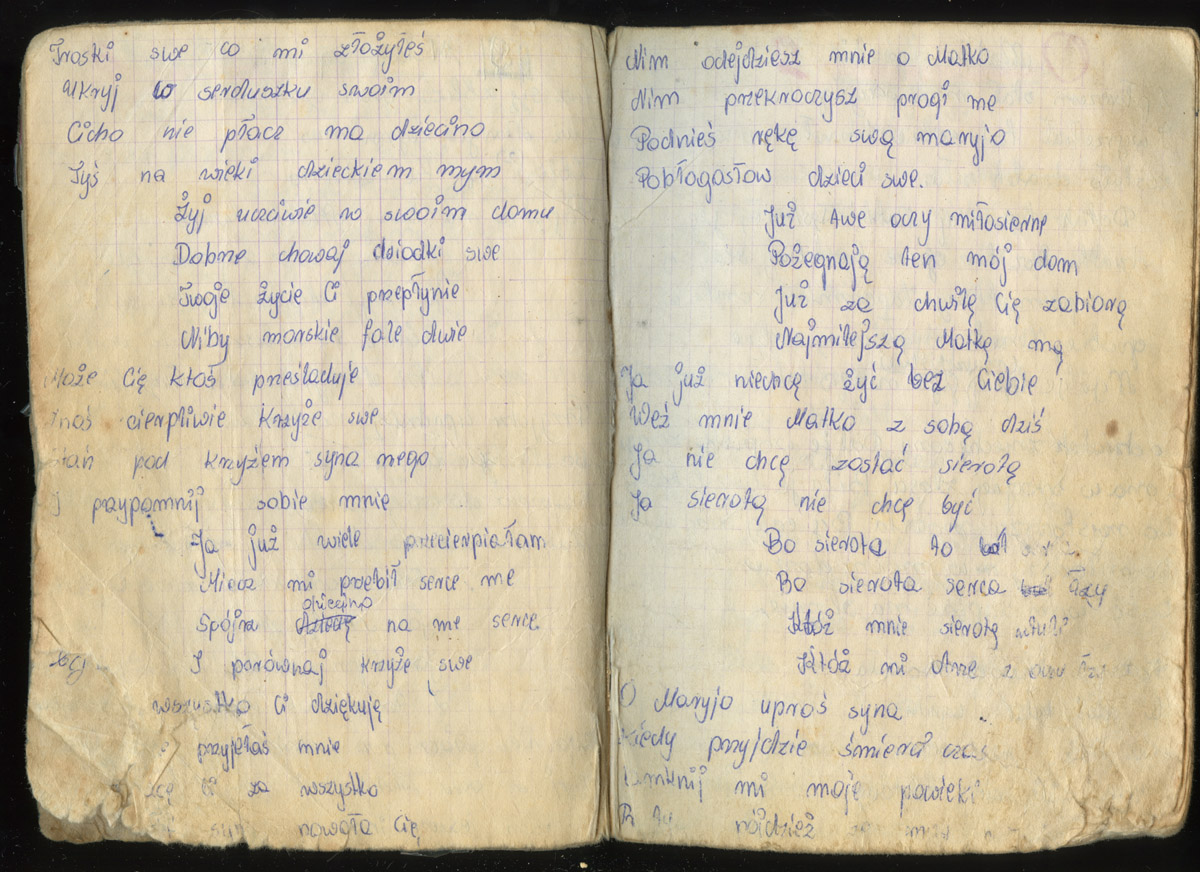 Troski swe co mi złożyłeś
Ukryj w serduszku swoim
Cicho nie płacz ma dziecino
Tyś na wieki dzieckiem mym
Żyj uczciwie w swoim domu
Dobrze chowaj dziadki swe
Twoje życie Ci przepłynie
Niby morskie fale dwie
Może Cię ktoś prześladuje
Znoś cierpliwie krzyże swe
pod krzyżem syna mego
I przypomnij sobie mnie
Ja już wiele przecierpiałam
Miecz mi przebił serce me
Spójrz dziecino na me serce
I porównaj krzyże swe
wszystko Ci dziękuję
przyjęłaś mnie
Ci za wszystko
syn nowoła Cię
Nim odejdziesz mnie o Matko
Nim przekroczysz progi me
Podnieś rękę swą maryjo
Pobłogosław dzieci swe.
Już twe oczy miłosierne
Pożegnają ten mój dom
Już za chwilę Cię zabiorą
Najmilejszą Matkę mą
Ja już niechcę żyć bez Ciebie
Weź mnie Matko z sobą dziś
Ja nie chcę zostać sierotą
Ja sierotą nie chcę być
Bo sierota to
Bo sierota serca łzy
Któż mnie sierotę utuli
Któż mi otrze z oczu
O Maryjo uproś syna
Kiedy przyjdzie śmierci czas
Zamknij mi moje powieki